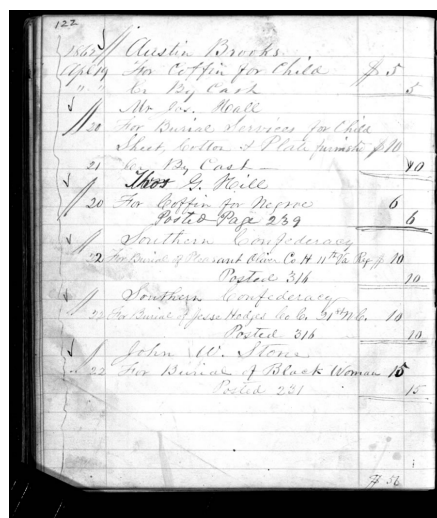 122
1862 Austin Brooks
Apl 19 For Coffin for Child $ 5
" " Cr By Cash 5
Mr Jas. Hall
20 For Burial Services for Child
Sheet, Cotton & Plate furnished $ 10
21 Cr By Cash 10
Thos G. Hill
20 For Coffin for Negroe 6
Posted Page 239 6
Southern Confederacy
22 For Burial of Oliver Co H 11th Va Reg $ 10
Posted 316 10
Southern Confederacy
22 For Burial of Jesse Hodges Co 21st N.C. 10
Posted 316 10
John W. Stone
22 For Burial of Black Woman 15
Posted 231 15
$ 56